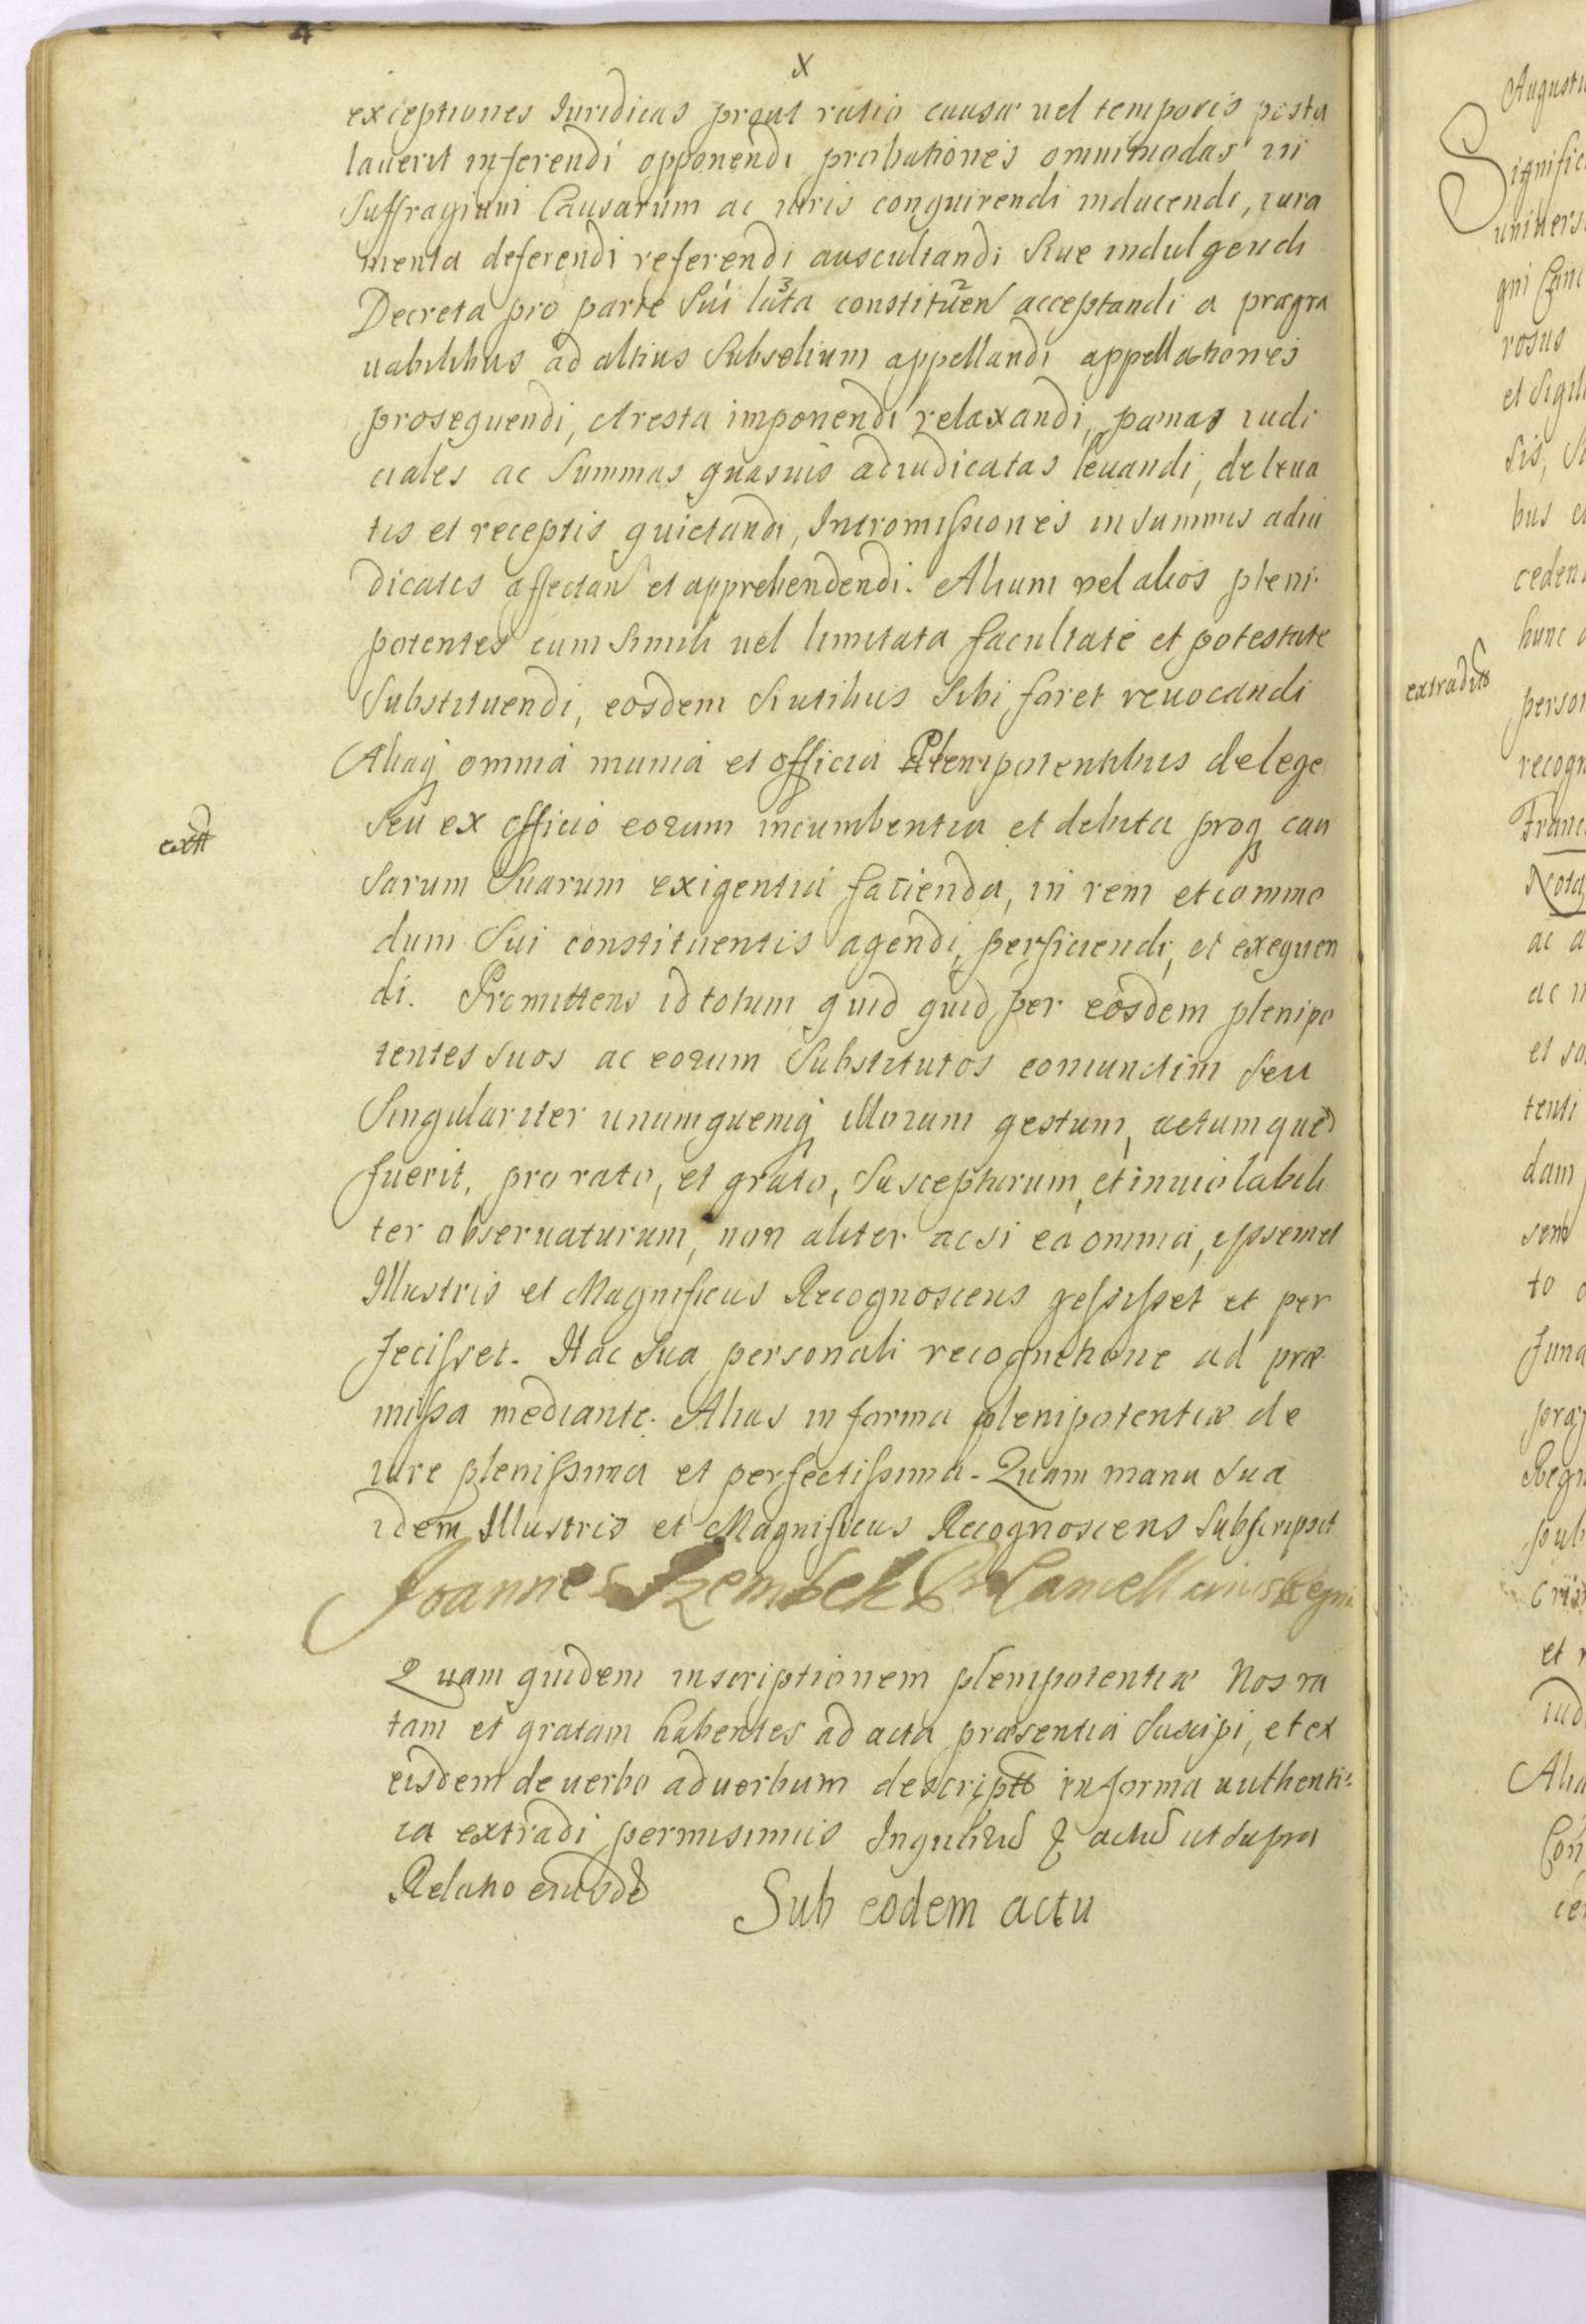 x
exceptiones Iuridicas prout ratio causæ uel temporis postu
lauerit inferendi opponendi probationes omnimodas in
Suffragium Causarum ac iuris conquirendi inducendi, iura
menta deferendi referendi auscultandi Siue indulgendi
Decreta pro parte Sui lata constituen acceptandi a prægra
uabilibus ad altius Subselium appellandi appellationes
prosequendi, Aresta imponendi relaxandi, pænas iudi
ciales ac Summas quasuis adiudicatas leuandi, de leua
tis et receptis quietandi, Intromissiones in summis adiu
dicatis affectan et apprehendendi. Alium vel alios pleni
potentes cum Simili uel limitata facultate et potestate
Substituendi, eosdem Si utilius Sibi foret reuocandi
Aliaq omnia munia et officia Plenipotentibus de lege
Seu ex officio eorum incumbentia et debita proq cau
sarum Suarum exigentia facienda, in rem et commo
dum Sui constituentis agendi, perficiendi, et exequen
di. Promittens id totum quid quid per eosdem plenipo
tentes suos ac eorum Substitutos coniunctim seu
Singulariter unumquemq illorum gestum, actumque
fuerit, pro rato, et grato, Suscepturum, et inuiolabili
ter obseruaturum, non aliter acsi ea omnia, ipsemet
Illustris et Magnificus Recognoscens gessisset et per
fecisset. Hac Sua personali recognitione ad præ
missa mediante. Alias in forma plenipotentiæ de
iure plenissima et perfectissima. Quam manu sua
idem Illustris et Magnificus Recognoscens Subscripsit
Joannes Szembek Cancellarius Regni
Quam quidem inscriptionem plenipotentiæ Nos ra
tam et gratam habentes ad acta præsentia Suscipi, et ex
eisdem de uerbo ad uerbum descriptt in forma authenti
ca extradi permisimus ut supra
Relatio eiusde
Sub eodem actu
extt
extraditt